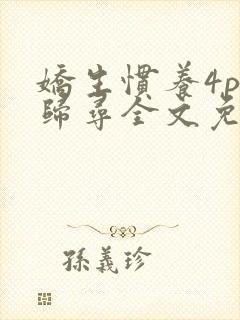 嬌生慣養4p
歸尋全文免
孫義珍